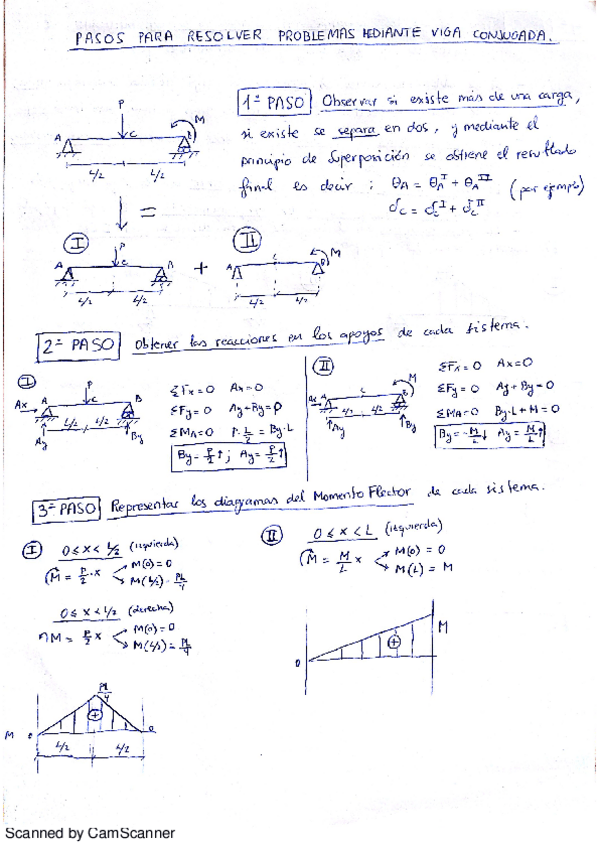 PASOS PARA RESOLVER PROBLEMAS MEDIANTE VIGA CONJUGADA.
1er PASO Observar si existe más de una carga,
si existe se separa en dos, y mediante el
principio de Superposición se obtiene el resultado
final es decir ; θA = θA^I + θA^II (por ejemplo)
δC = δC^I + δC^II
P
M
A
C
B
L/2 L/2
=
I
P
A C B
L/2 L/2
+
II
M
A C B
L/2 L/2
2º PASO Obtener las reacciones en los apoyos de cada sistema.
I
P
Ax A C B
L/2 L/2
Ay By
ΣFx = 0 Ax = 0
ΣFy = 0 Ay + By = P
ΣMA = 0 P · L/2 = By · L
By = P/2 ↑ ; Ay = P/2 ↑
II
M
Ax A C B
L/2 L/2
Ay By
ΣFx = 0 Ax = 0
ΣFy = 0 Ay + By = 0
ΣMA = 0 By · L + M = 0
By = -M/L ↓ Ay = M/L ↑
3er PASO Representar los diagramas del Momento Flector de cada sistema.
I 0 ≤ x < L/2 (izquierda)
M = P/2 · x
M(0) = 0
M(L/2) = PL/4
0 ≤ x < L/2 (derecha)
M = P/2 x
M(0) = 0
M(L/2) = PL/4
PL/4
+
M 0 0
L/2 L/2
II 0 ≤ x < L (izquierda)
M = M/L x
M(0) = 0
M(L) = M
M
+
0
Scanned by CamScanner